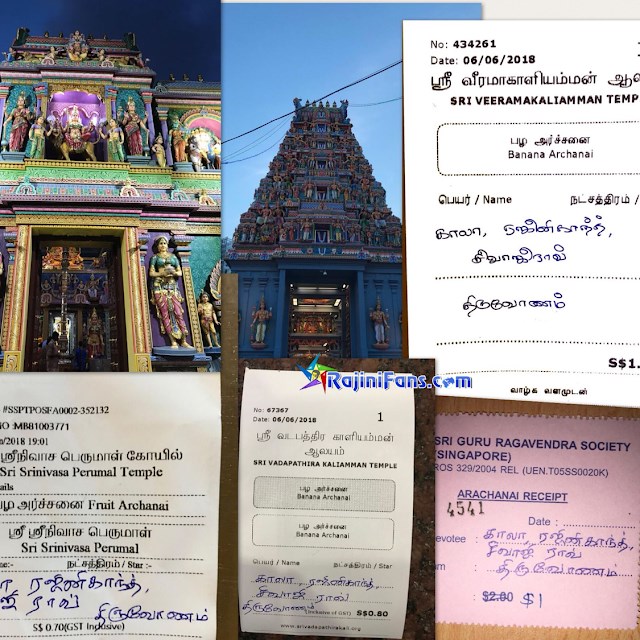 No: 434261
Date: 06/06/2018
ஸ்ரீ வீரமாகாளியம்மன்
SRI VEERAMAKALIAMMAN
பழ அர்ச்சனை
Banana Archanai
பெயர் / Name
நட்சத்திரம் /
காலா, ரஜினிகாந்த்,
சிவாஜிராவ்
திருவோணம்
S$1.
வாழ்க வளமுடன்
RajiniFans.com
#SSPTPOSFA0002-352132
NO :MB81003771
/2018 19:01
ஸ்ரீனிவாச பெருமாள் கோயில்
Sri Srinivasa Perumal Temple
பழ அர்ச்சனை Fruit Archanai
ஸ்ரீ ஸ்ரீநிவாச பெருமாள்
Sri Srinivasa Perumal
நட்சத்திரம் / Star :-
ரஜினிகாந்த்,
ராவ் திருவோணம்
S$ 0.70(GST Inclusive)
No: 67367
Date: 06/06/2018
1
ஸ்ரீ வடபத்திர காளியம்மன்
ஆலயம்
SRI VADAPATHIRA KALIAMMAN TEMPLE
பழ அர்ச்சனை
Banana Archanai
பழ அர்ச்சனை
Banana Archanai
பெயர் / Name
நட்சத்திரம் / Star
காலா, ரஜினிகாந்த்,
சிவாஜி ராவ்
திருவோணம்
(Inclusive of GST) S$0.80
www.srivadapathirakali.org
SRI GURU RAGAVENDRA SOCIETY
(SINGAPORE)
ROS 329/2004 REL (UEN.T05SS0020K)
ARACHANAI RECEIPT
4541
Date :
evotee : காலா, ரஜினிகாந்த்,
சிவாஜி ராவ்
திருவோணம்
: $2.00 $1